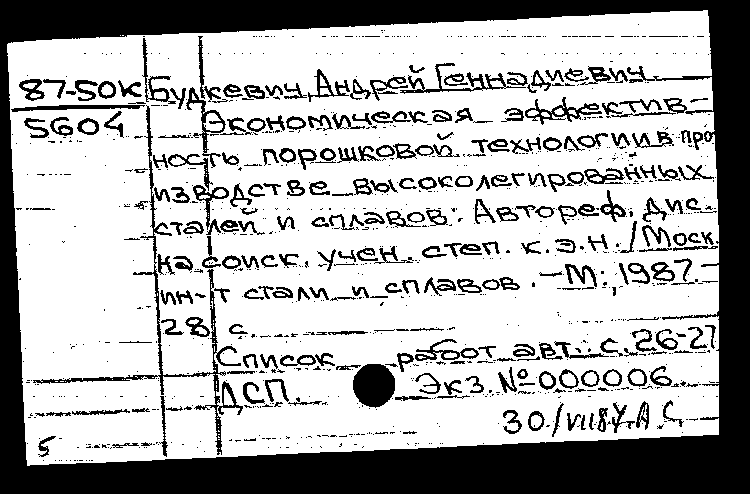 87-50к Будкевич, Андрей Геннадиевич.
5604 Экономическая эффектив-
ность порошковой технологии в про
изводстве высоколегированных
сталей и сплавов: Автореф. дис.
на соиск. учен. степ. к.э.н. / Моск.
ин-т стали и сплавов. – М:, 1987. –
28 с.
Список работ авт.: с. 26-27
ДСП. Экз. № 000006.
5 30/VII87. А.С.